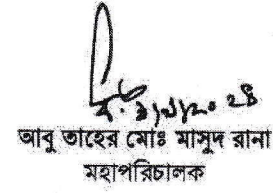 আবু তাহের মোঃ মাসুদ রানা
মহাপরিচালক